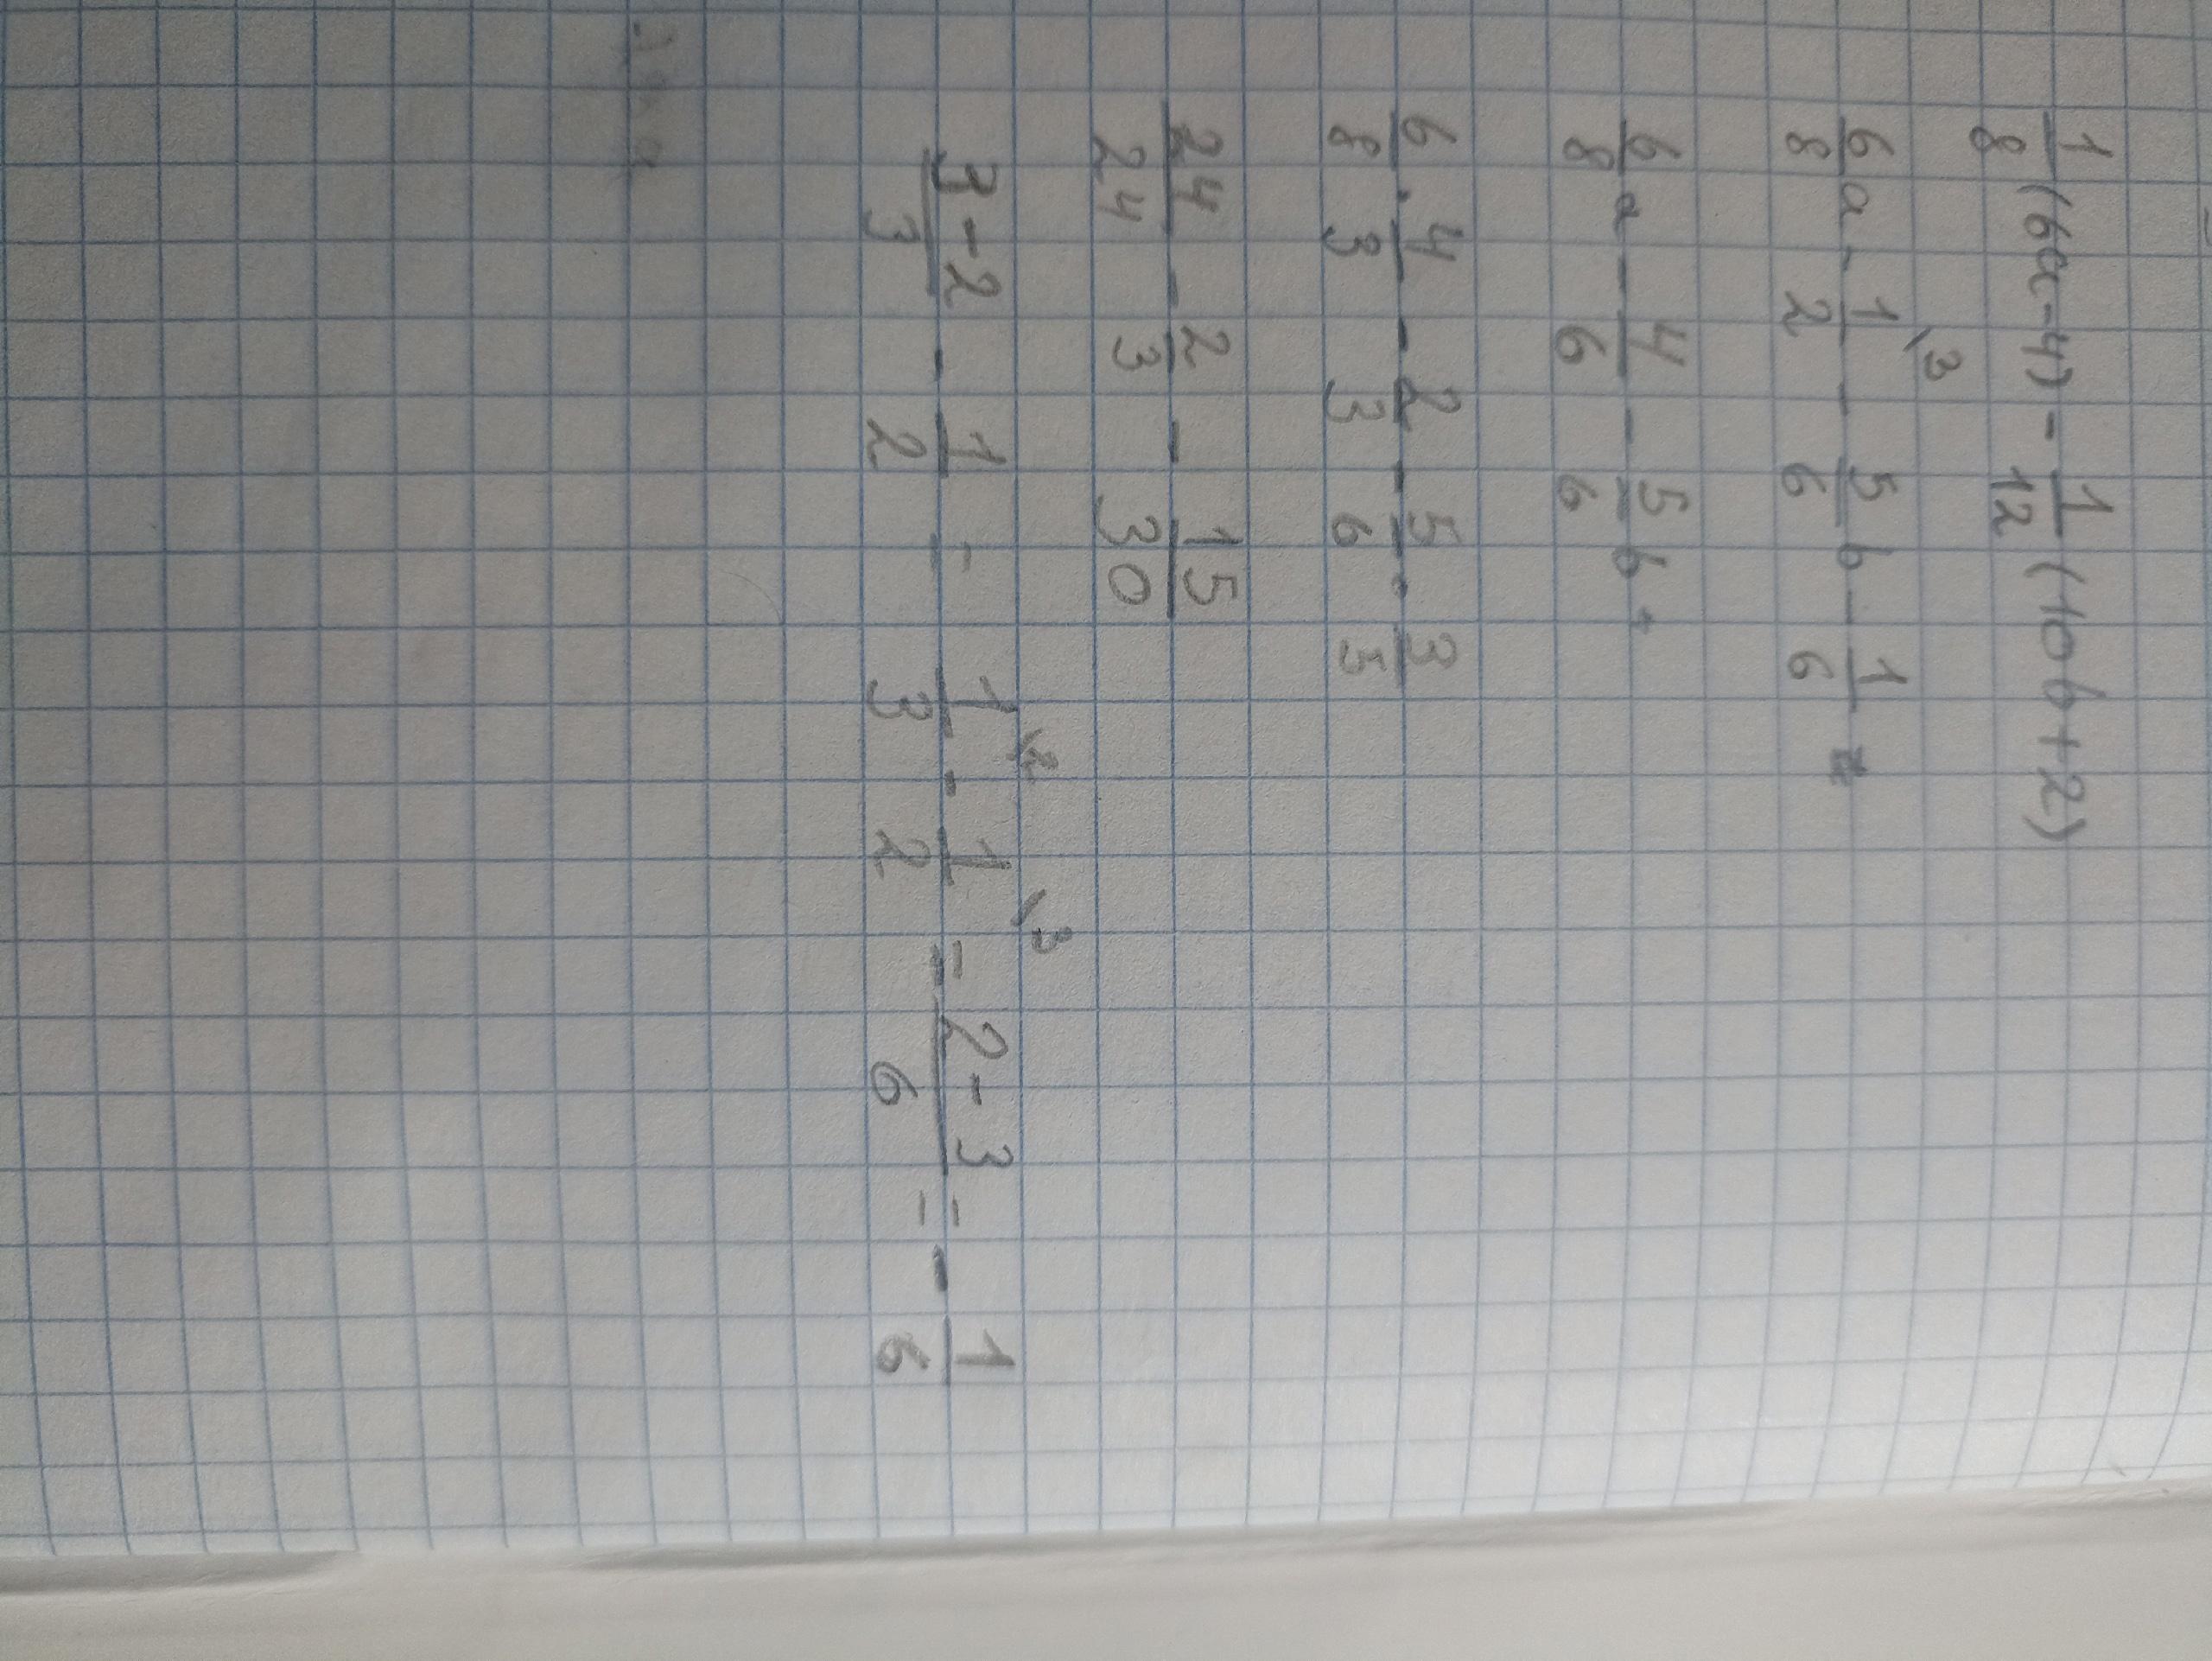 1/8 (6a-4) - 1/12 (10b+2)
6/8 a - 1/2 \3 - 5/6 b - 1/6
6/8 a - 4/6 - 5/6 b
6/8 · 4/3 - 2/3 - 5/6 · 3/5
24/24 - 2/3 - 15/30
3-2/3 - 1/2 = 1/3 \2 - 1/2 \3 = 2-3/6 = - 1/6